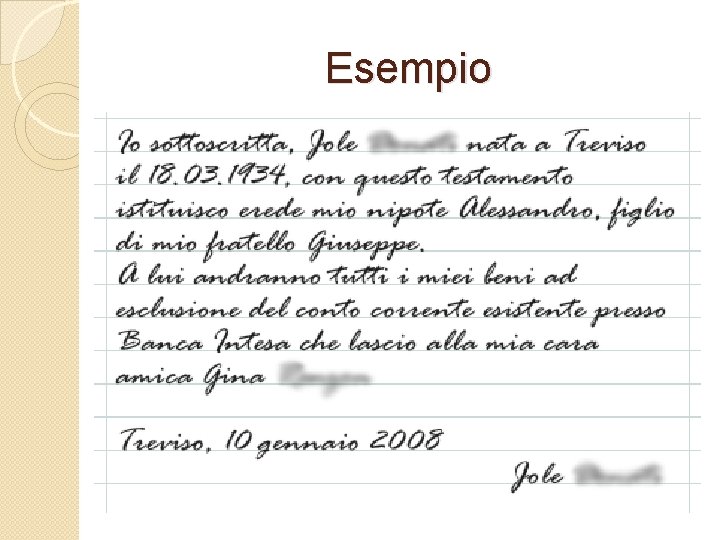 Esempio
Io sottoscritta, Jole nata a Treviso
il 18.03.1934, con questo testamento
istituisco erede mio nipote Alessandro, figlio
di mio fratello Giuseppe.
A lui andranno tutti i miei beni ad
esclusione del conto corrente esistente presso
Banca Intesa che lascio alla mia cara
amica Gina
Treviso, 10 gennaio 2008
Jole